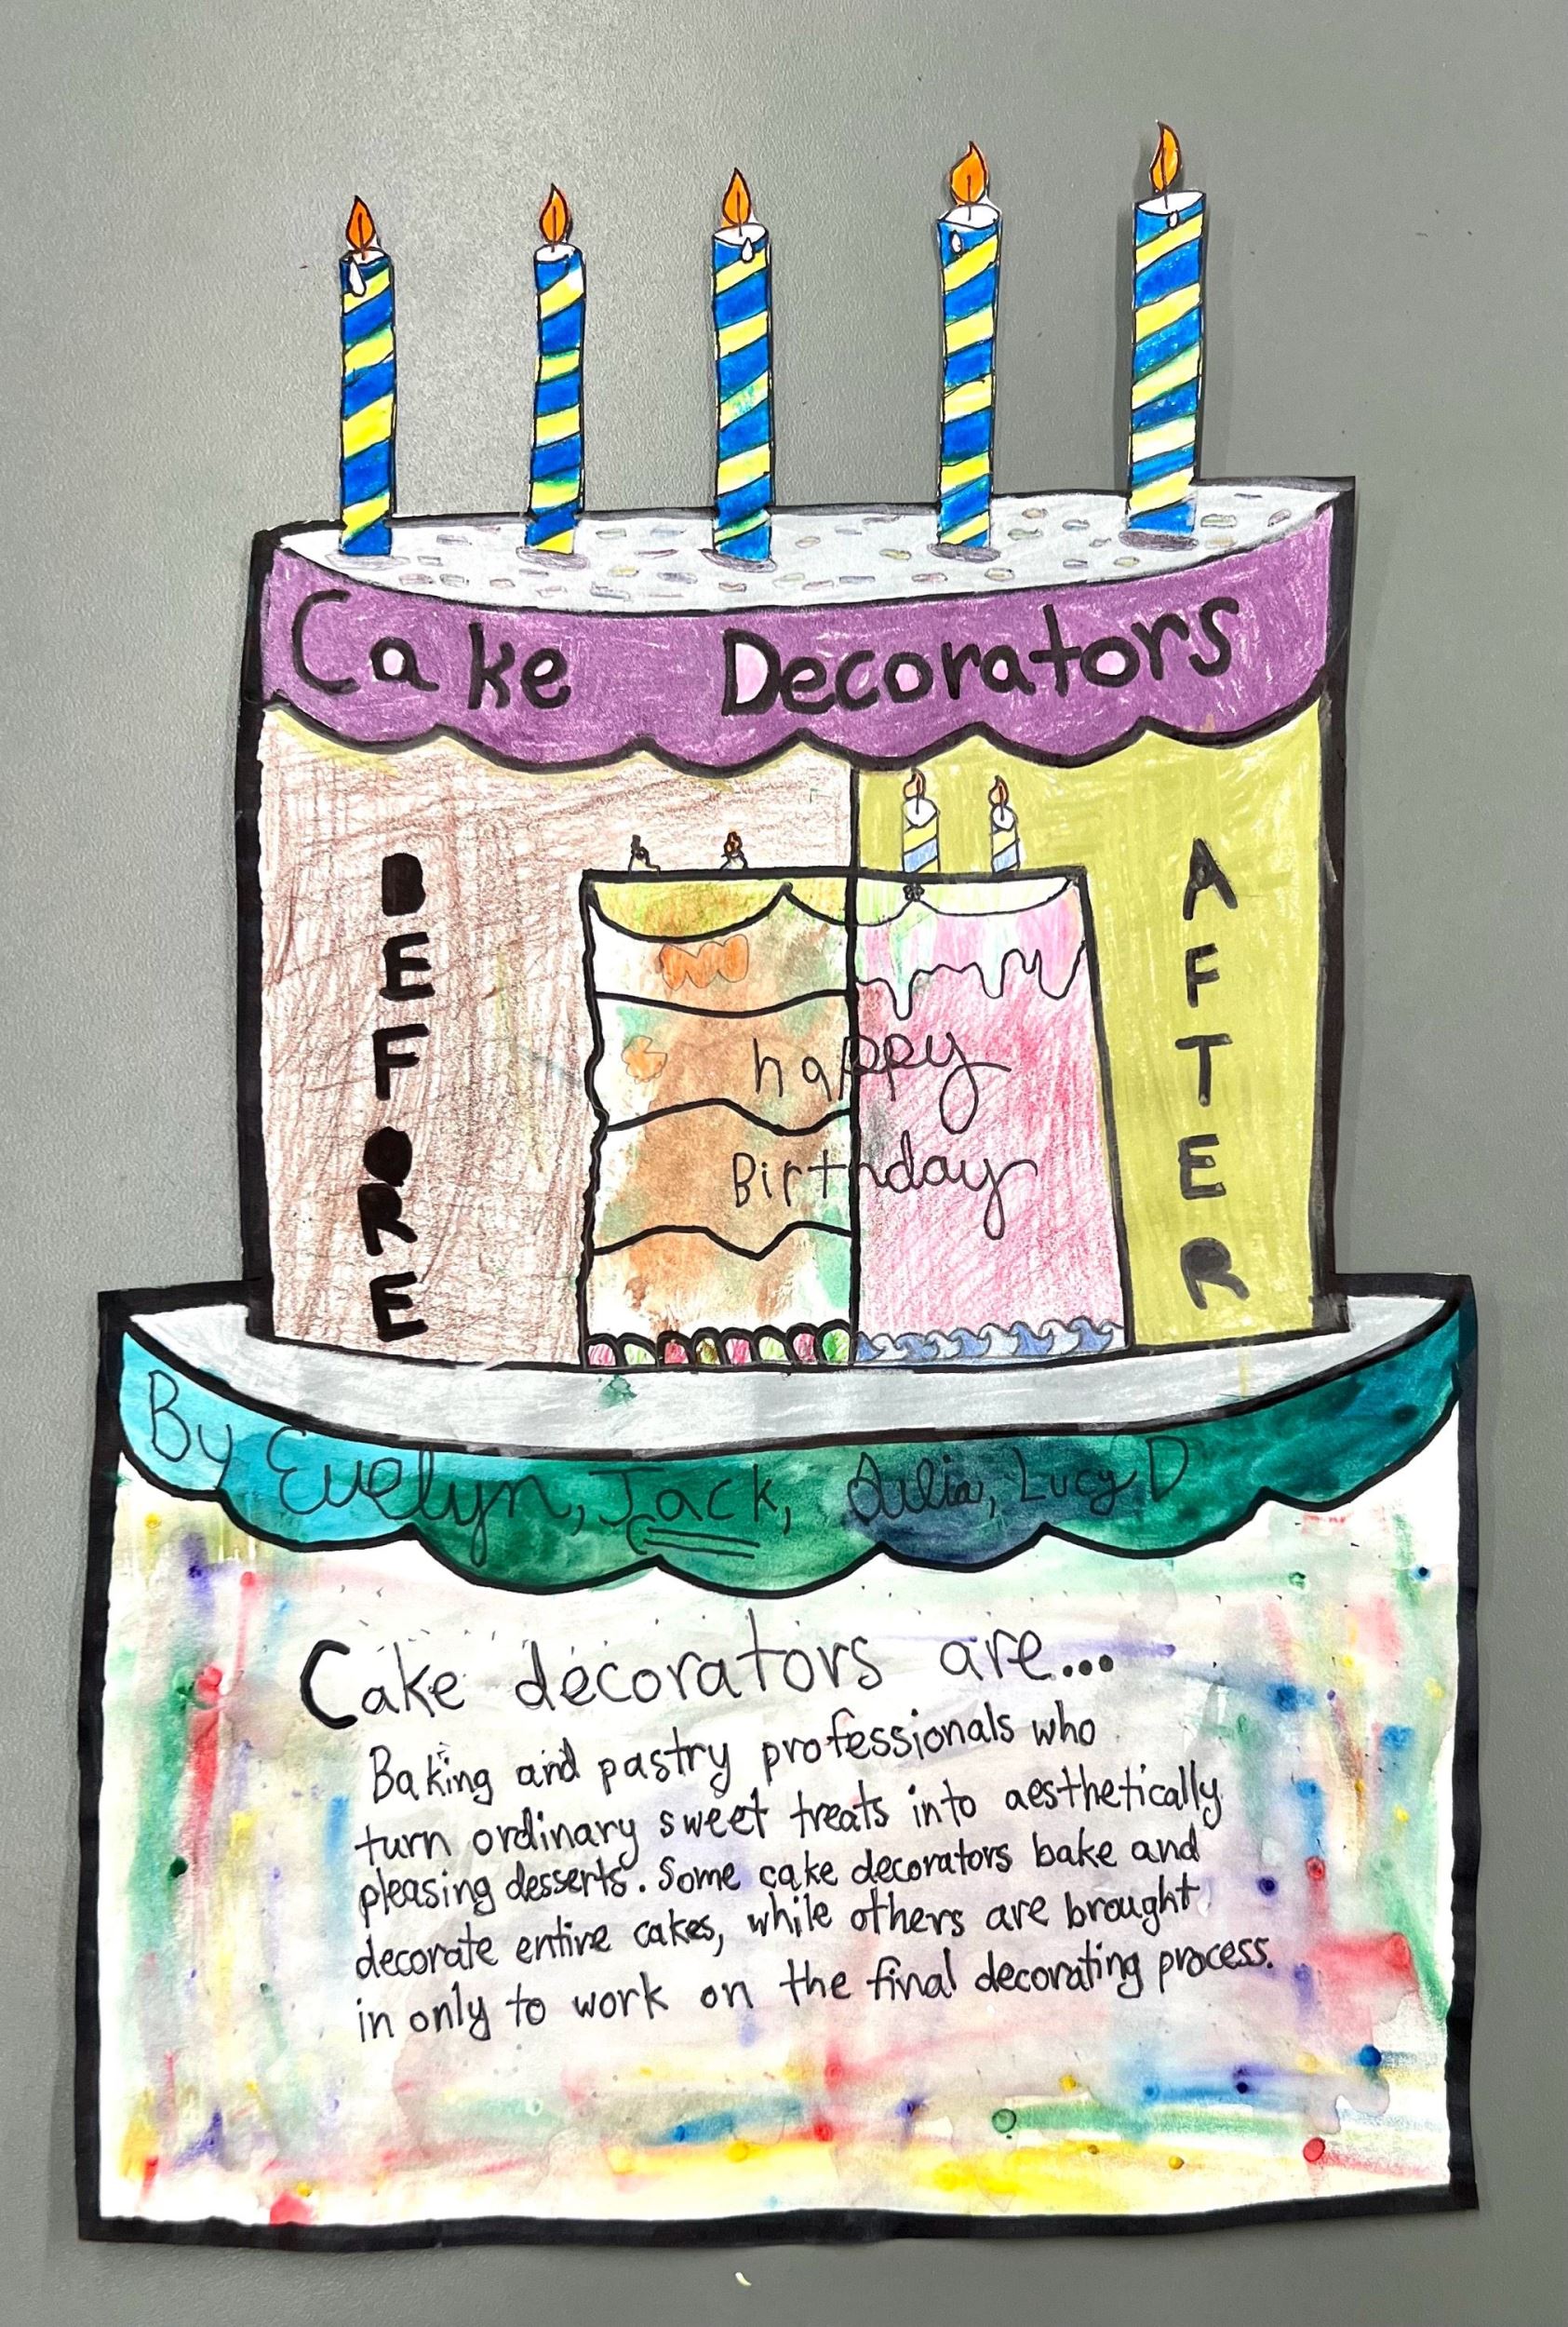 Cake Decorators
BEFORE
AFTER
happy
Birthday
By Evelyn, Jack, Julia, Lucy D
Cake decorators are...
Baking and pastry professionals who
turn ordinary sweet treats into aesthetically
pleasing desserts. Some cake decorators bake and
decorate entire cakes, while others are brought
in only to work on the final decorating process.